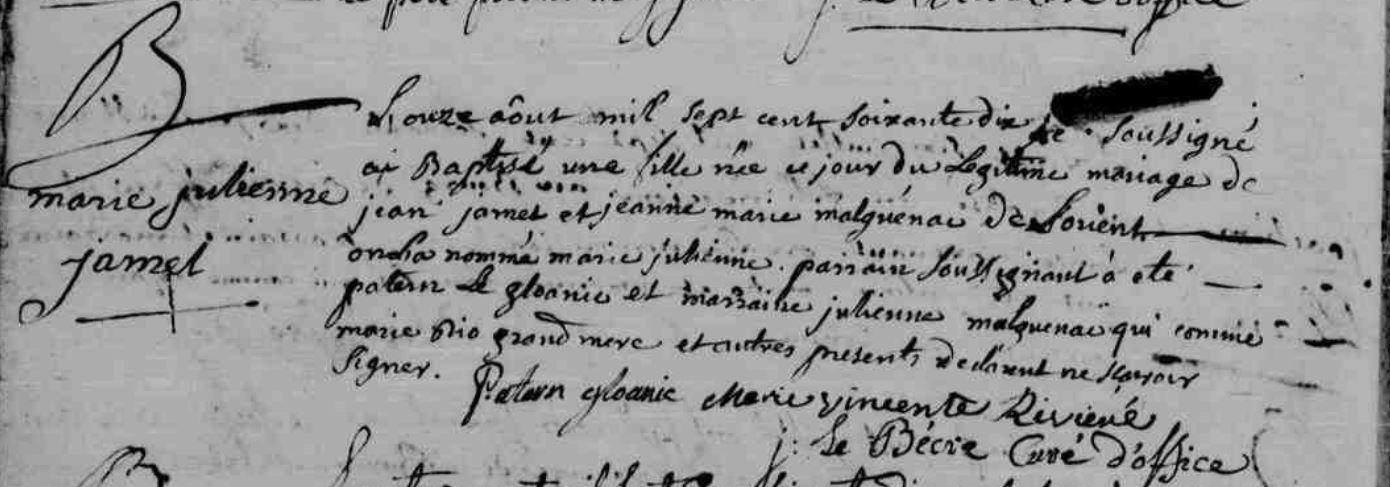 B
marie julienne
jamet
L'onze aôut mil sept cent soixante dix je soussigné
ai Baptisé une fille née ce jour du Legitime mariage de
jean jamet et jeanne marie malguénac de Lorient
on l'a nommé marie julienne. parrain soussignant à eté
patern Le gloanic et marraine julienne malguenac qui comme
marie grand mere et autres presents declarent ne sçavoir
signer.
Patern gloanic Marie vincente Rivieré
j: Le Bécre Curé d'office